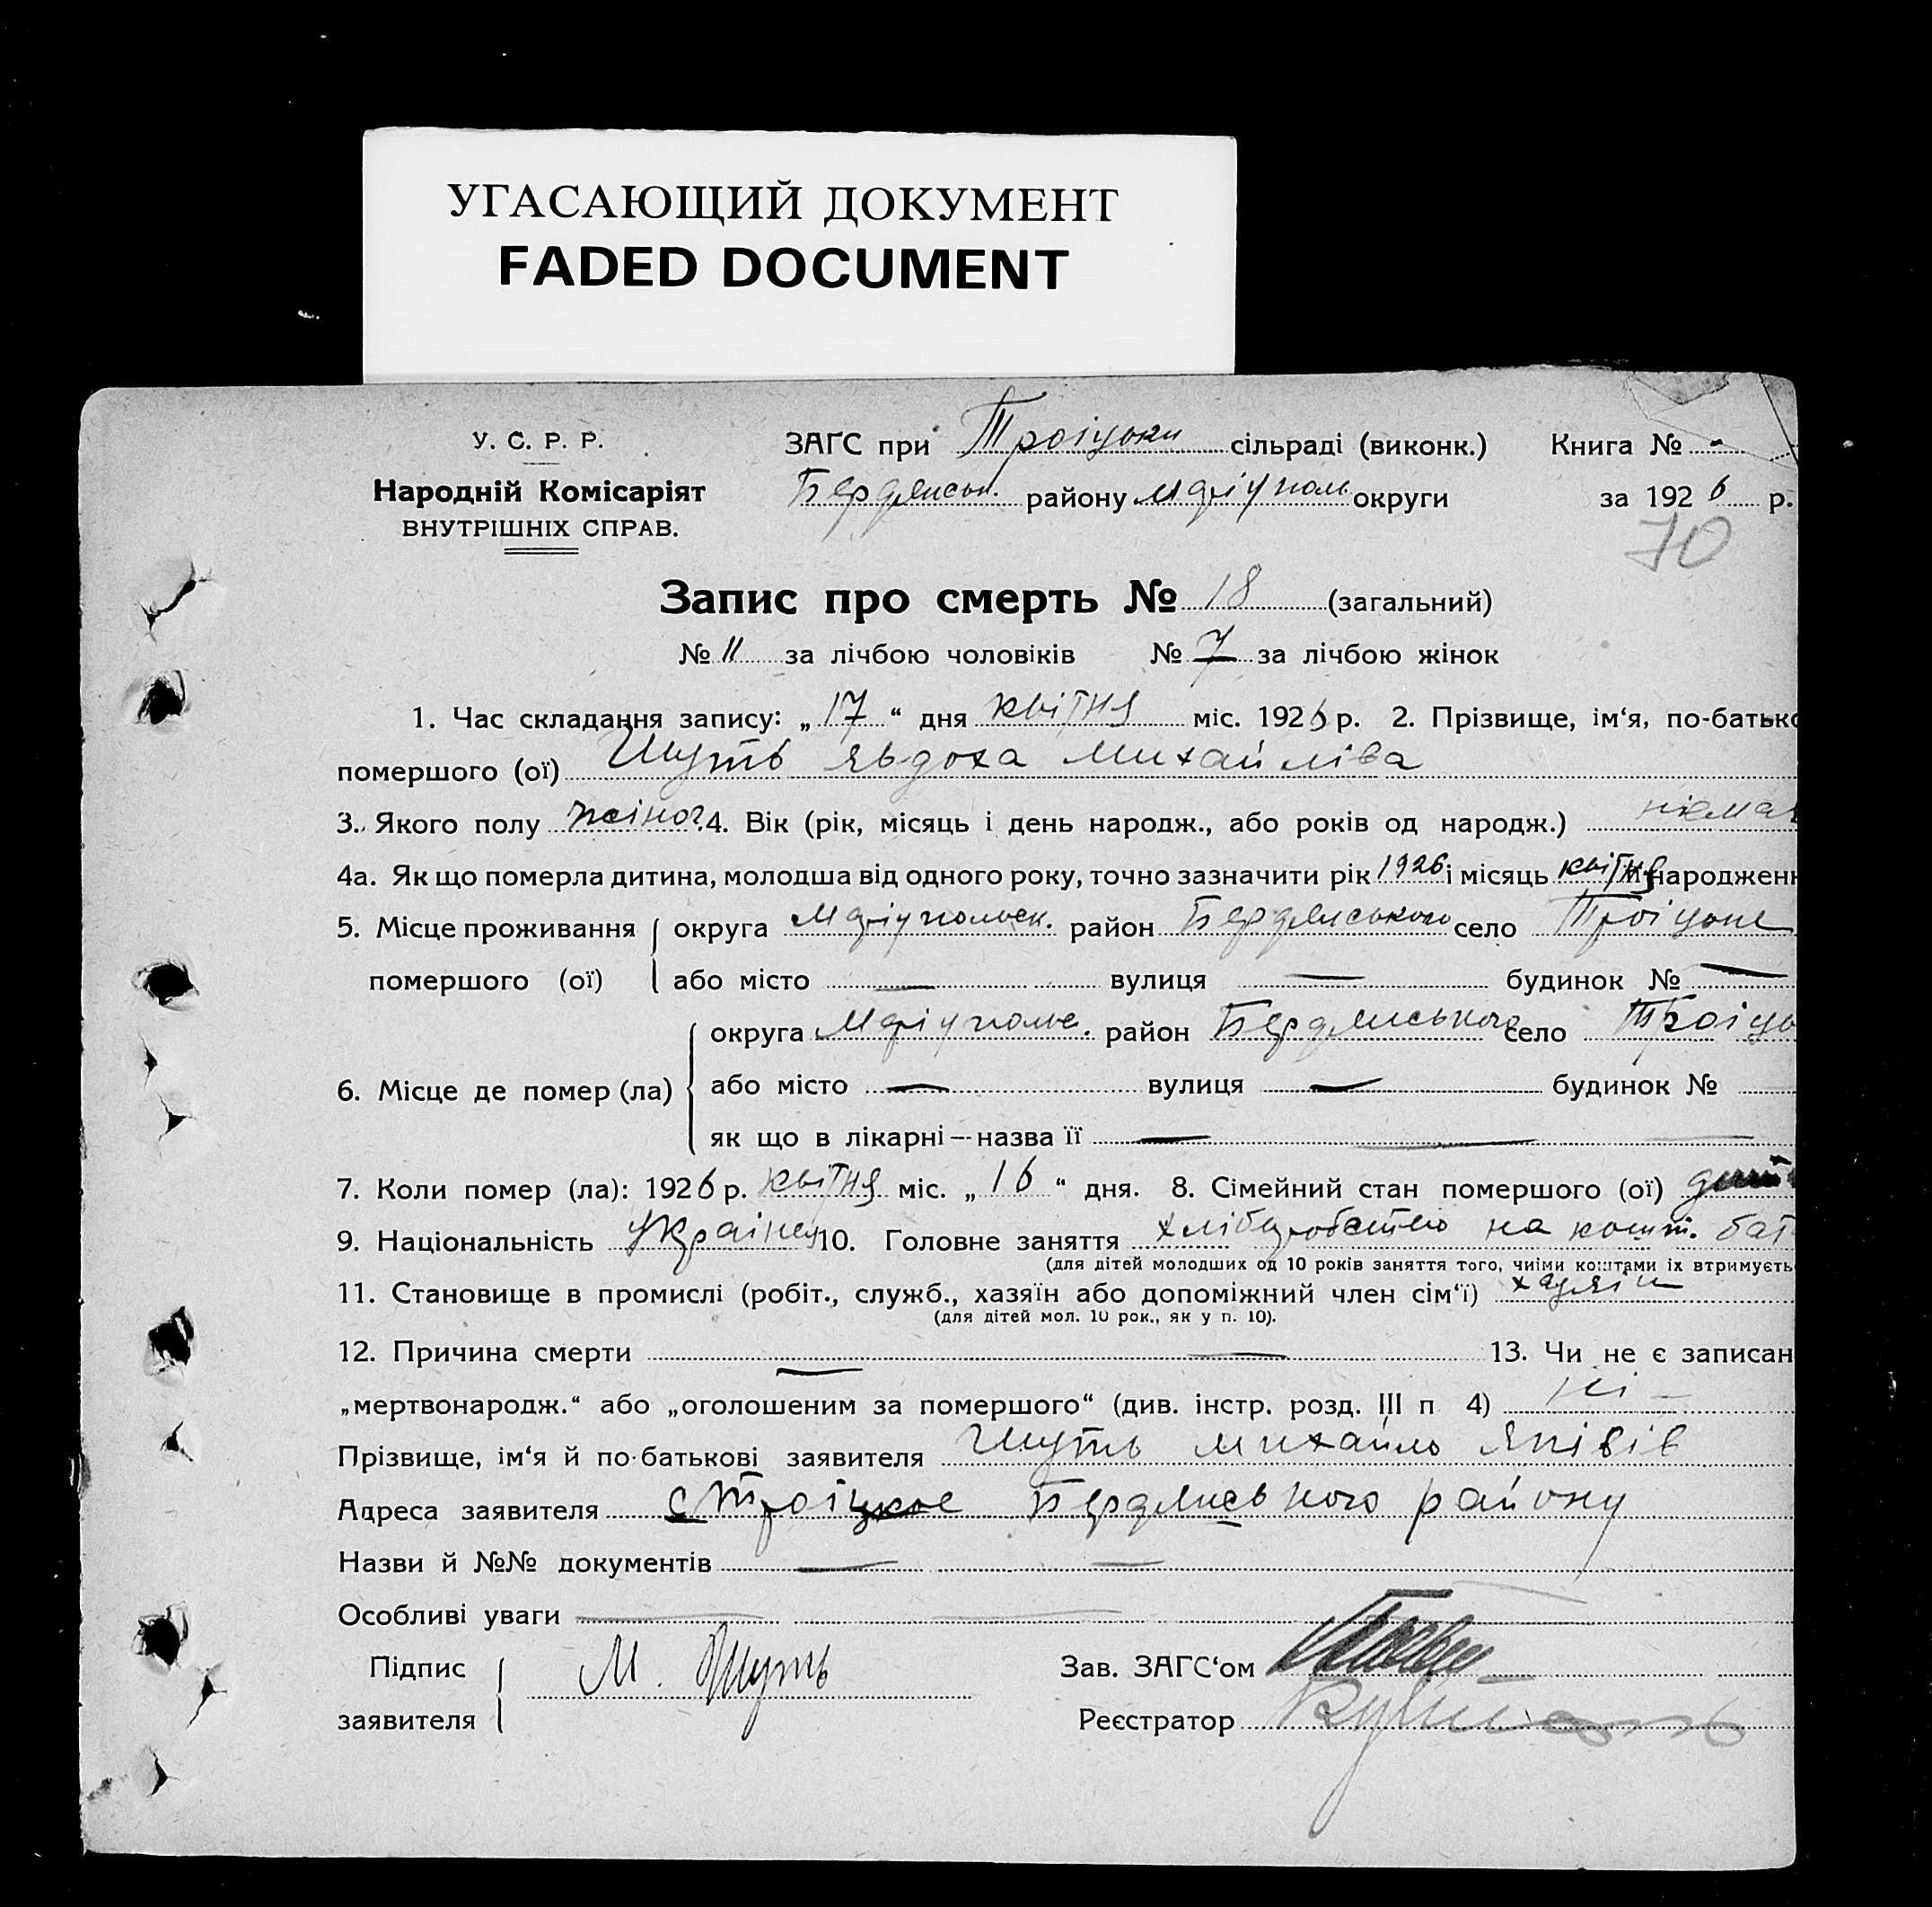 УГАСАЮЩИЙ ДОКУМЕНТ
FADED DOCUMENT
У. С. Р. Р.
Народній Комісаріят
ВНУТРІШНІХ СПРАВ.
ЗАҐС при Троіцьки сільраді (виконк.) Книга № -
Бердянськ. району Маріуполь округи за 1926 р.
70
Запис про смерть № 18 (загальний)
№ 11 за лічбою чоловіків № 7 за лічбою жінок
1. Час складання запису: „17“ дня квітня міс. 1926 р. 2. Прізвище, ім‘я, по-батько
помершого (ої) Шуть Явдоха Михайліва
3. Якого полу жіноч. 4. Вік (рік, місяць і день народж., або років од народж.)
4а. Як що померла дитина, молодша від одного року, точно зазначити рік 1926 і місяць квітня народженн
5. Місце проживання помершого (ої) округа Маріупольськ. район Бердянського село Троіцьке
або місто — вулиця — будинок № —
6. Місце де помер (ла) округа Маріупольс. район Бердянського село Троіць
або місто — вулиця — будинок №
як що в лікарні — назва її —
7. Коли помер (ла): 1926 р. квітня міс. „16“ дня. 8. Сімейний стан помершого (ої)
9. Національність 10. Головне заняття хліборобство на кошт. бат
(для дітей молодших од 10 років заняття того, чиїми коштами їх втримуєть
11. Становище в промислі (робіт., служб., хазяїн або допоміжний член сім‘ї) хазяін
(для дітей мол. 10 рок., як у п. 10).
12. Причина смерти — 13. Чи не є записан
„мертвонародж.“ або „оголошеним за помершого“ (див. інстр. розд. III п 4) ні —
Прізвище, ім‘я й по-батькові заявителя Шуть Михайло Яківів
Адреса заявителя с Троіцкое Бердянського району
Назви й №№ документів —
Особливі уваги —
Підпис заявителя М. Шуть Зав. ЗАҐС‘ом
Реєстратор